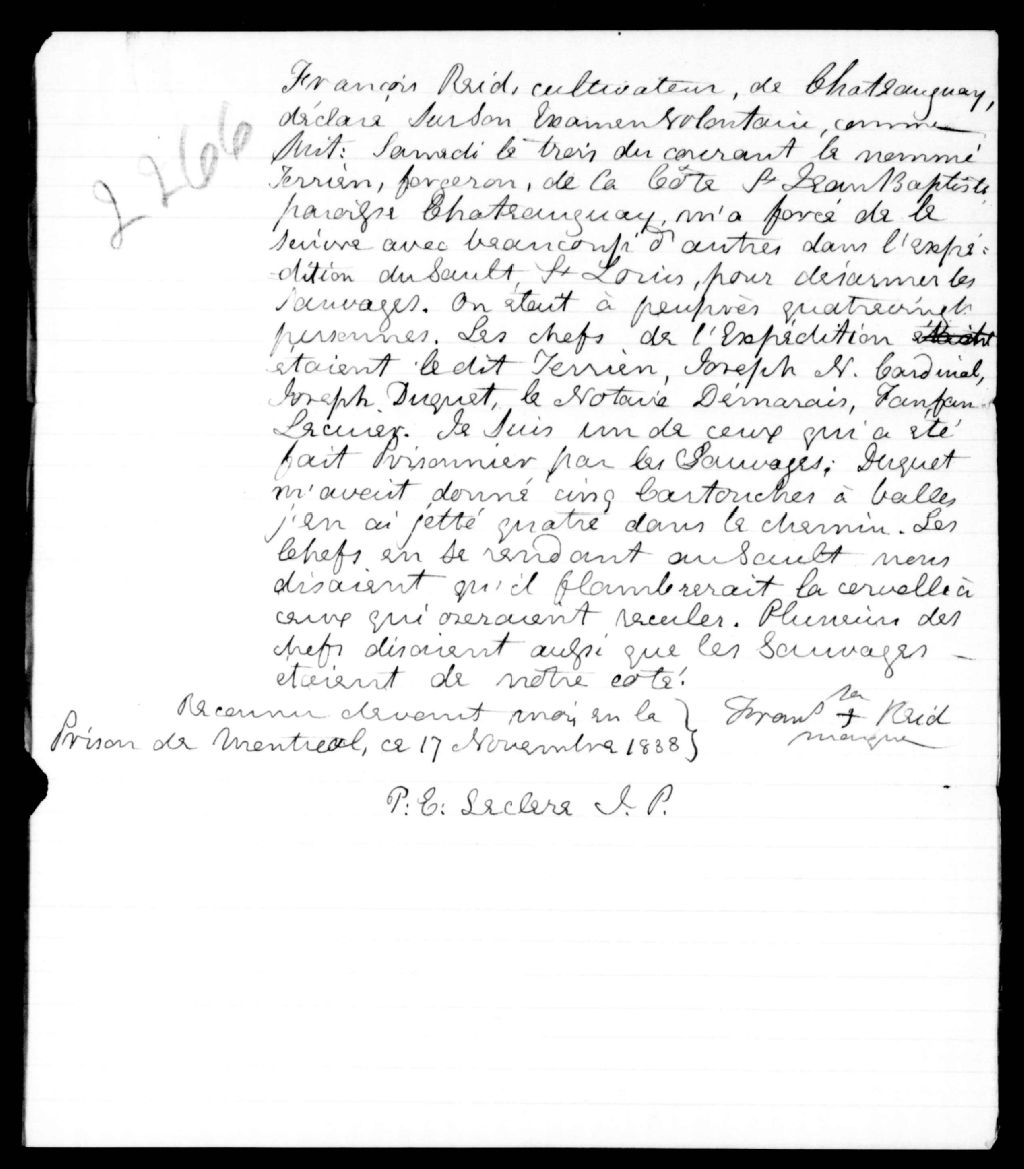 2266
François Reid, cultivateur, de Chateauguay,
déclare Sur Son Examen Volontaire, comme
Suit: Samedi le trois du courant le nommé
Terrien, forgeron, de la Côte St Jean Baptiste
paroisse Chateauguay, m'a forcé de le
suivre avec beaucoup d'autres dans l'expé=
dition du Sault St Louis, pour désarmer les
Sauvages. On était à peuprès quatrevingt
personnes. Les chefs de l'Expédition
étaient le dit Terrien, Joseph N. Cardinal,
Joseph Duquet, le Notaire Démarais, Fanfan
Lecuier. Je Suis un de ceux qui a été
fait Prisonnier par les Sauvages; Duquet
m'avait donné cinq Cartouches à balles
j'en ai jetté quatre dans le chemin. Les
Chefs en se rendant au Sault nous
disaient qu'il flamberait la cervelle à
ceux qui oseraient reculer. Plusieurs des
chefs disaient aussi que les Sauvages –
etaient de notre coté.
Reconnu devant moi, en la } Frans sa + Reid
Prison de Montreal, ce 17 Novembre 1838 } marque
P: E: Leclere J. P.